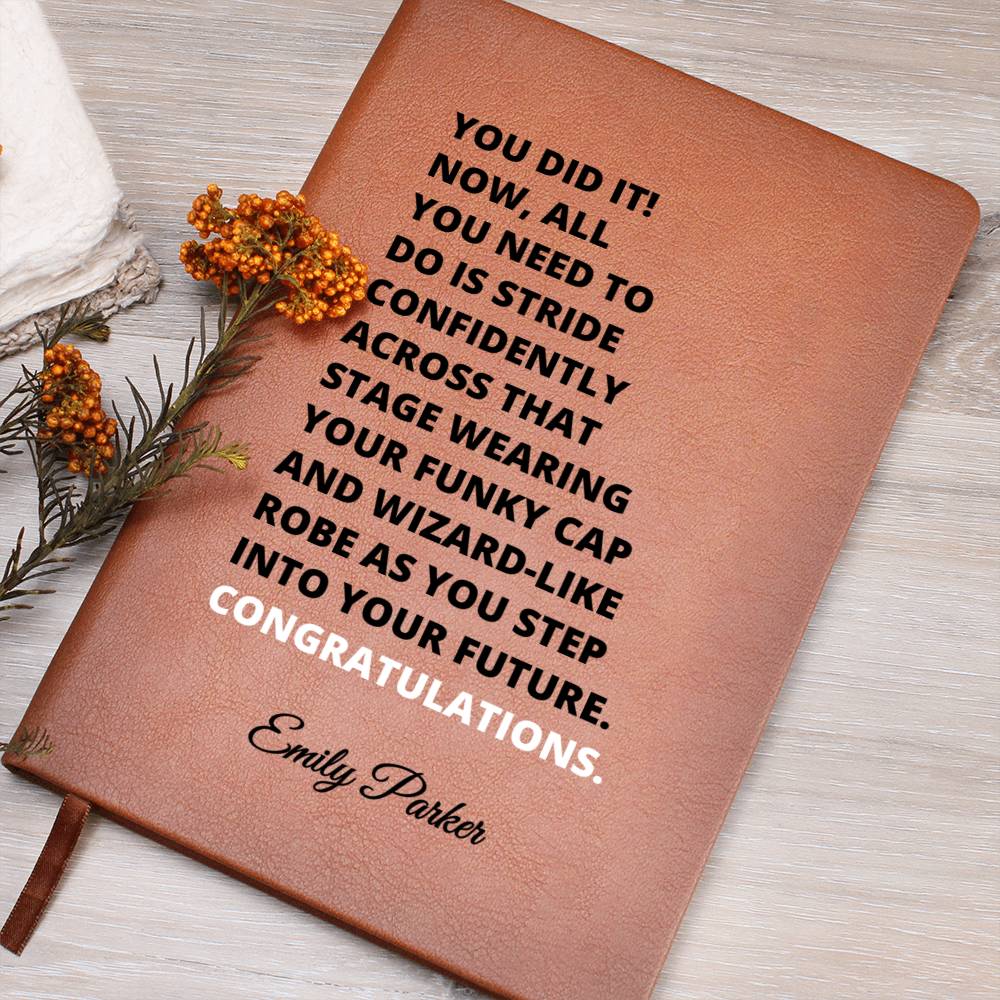 YOU DID IT!
NOW, ALL
YOU NEED TO
DO IS STRIDE
CONFIDENTLY
ACROSS THAT
STAGE WEARING
YOUR FUNKY CAP
AND WIZARD-LIKE
ROBE AS YOU STEP
INTO YOUR FUTURE.
CONGRATULATIONS.
Emily Parker